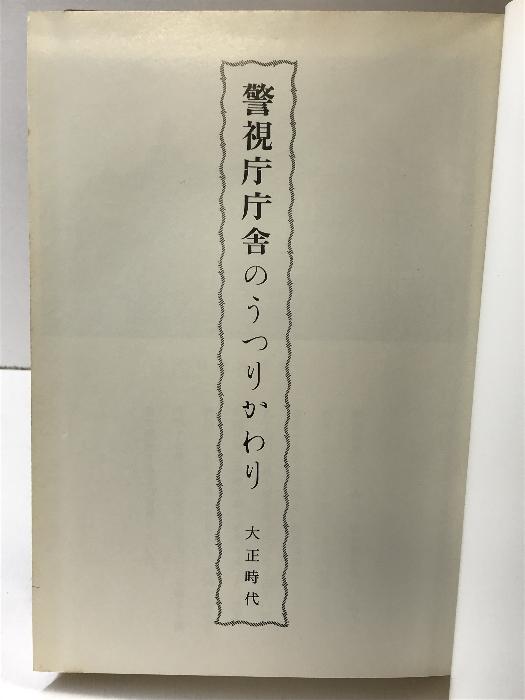 警視庁庁舎のうつりかわり
大正時代